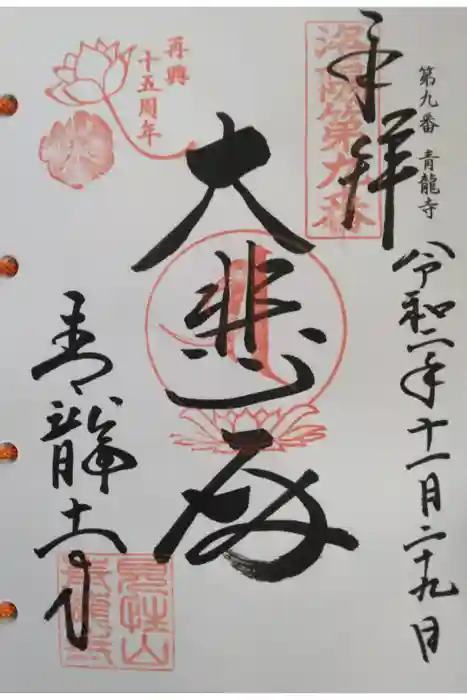 奉拝
洛陽第九番
第九番 青龍寺
令和二年十一月二十九日
再興
十五周年
大悲殿
青龍寺
見性山